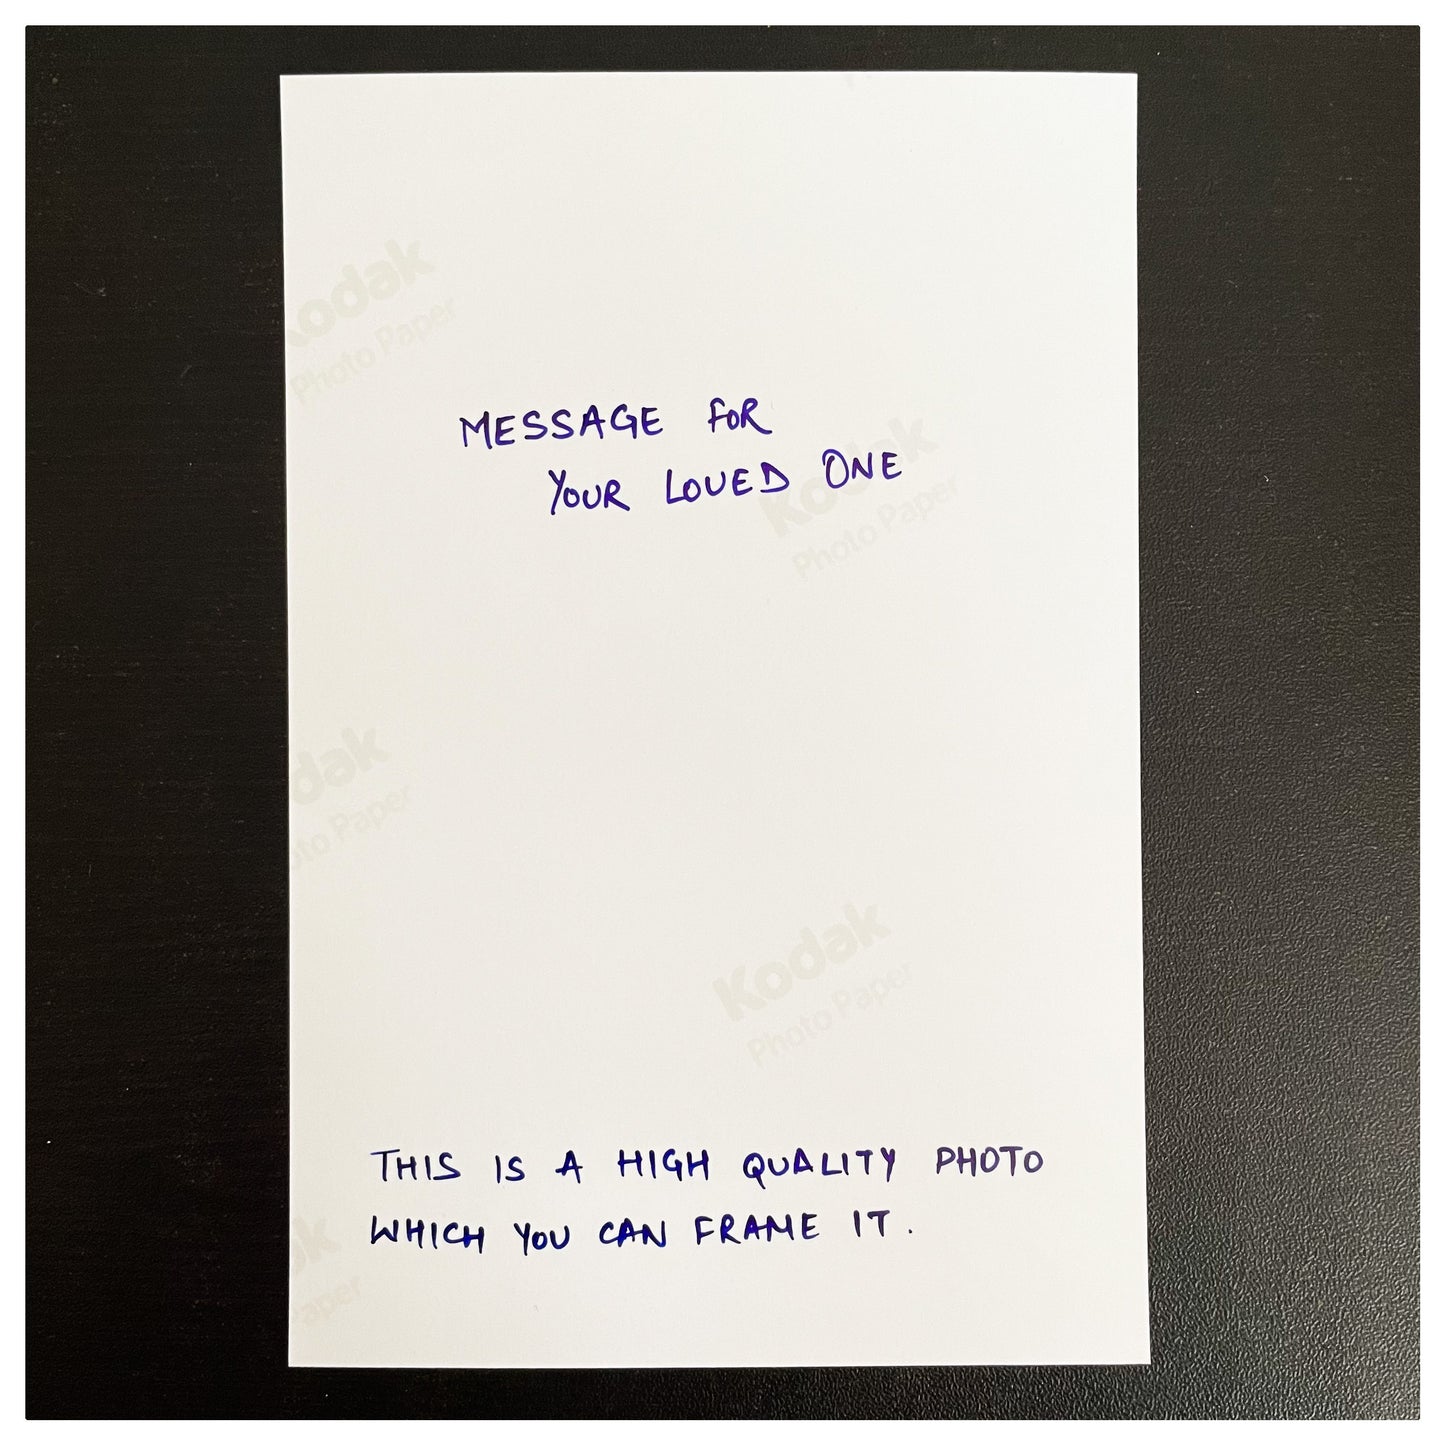 Kodak
Photo Paper
MESSAGE FOR
YOUR LOVED ONE
Kodak
Photo Paper
dak
to Paper
Kodak
Photo Paper
THIS IS A HIGH QUALITY PHOTO
WHICH YOU CAN FRAME IT.
ak
aper